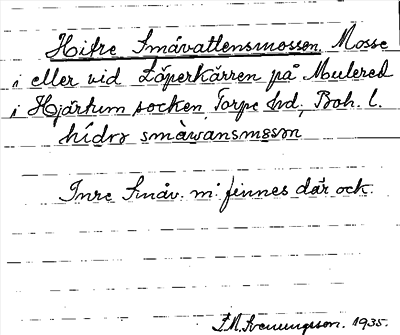 Hitre Småvattensmossen, Mosse
i eller vid Löperkärren på Mulered
i Hjärtum socken, Torpe hd, Boh. l.
hídrə småwansmɵsən
Inre Småv. m: finnes där ock.
F.M. Svenungsson. 1935.